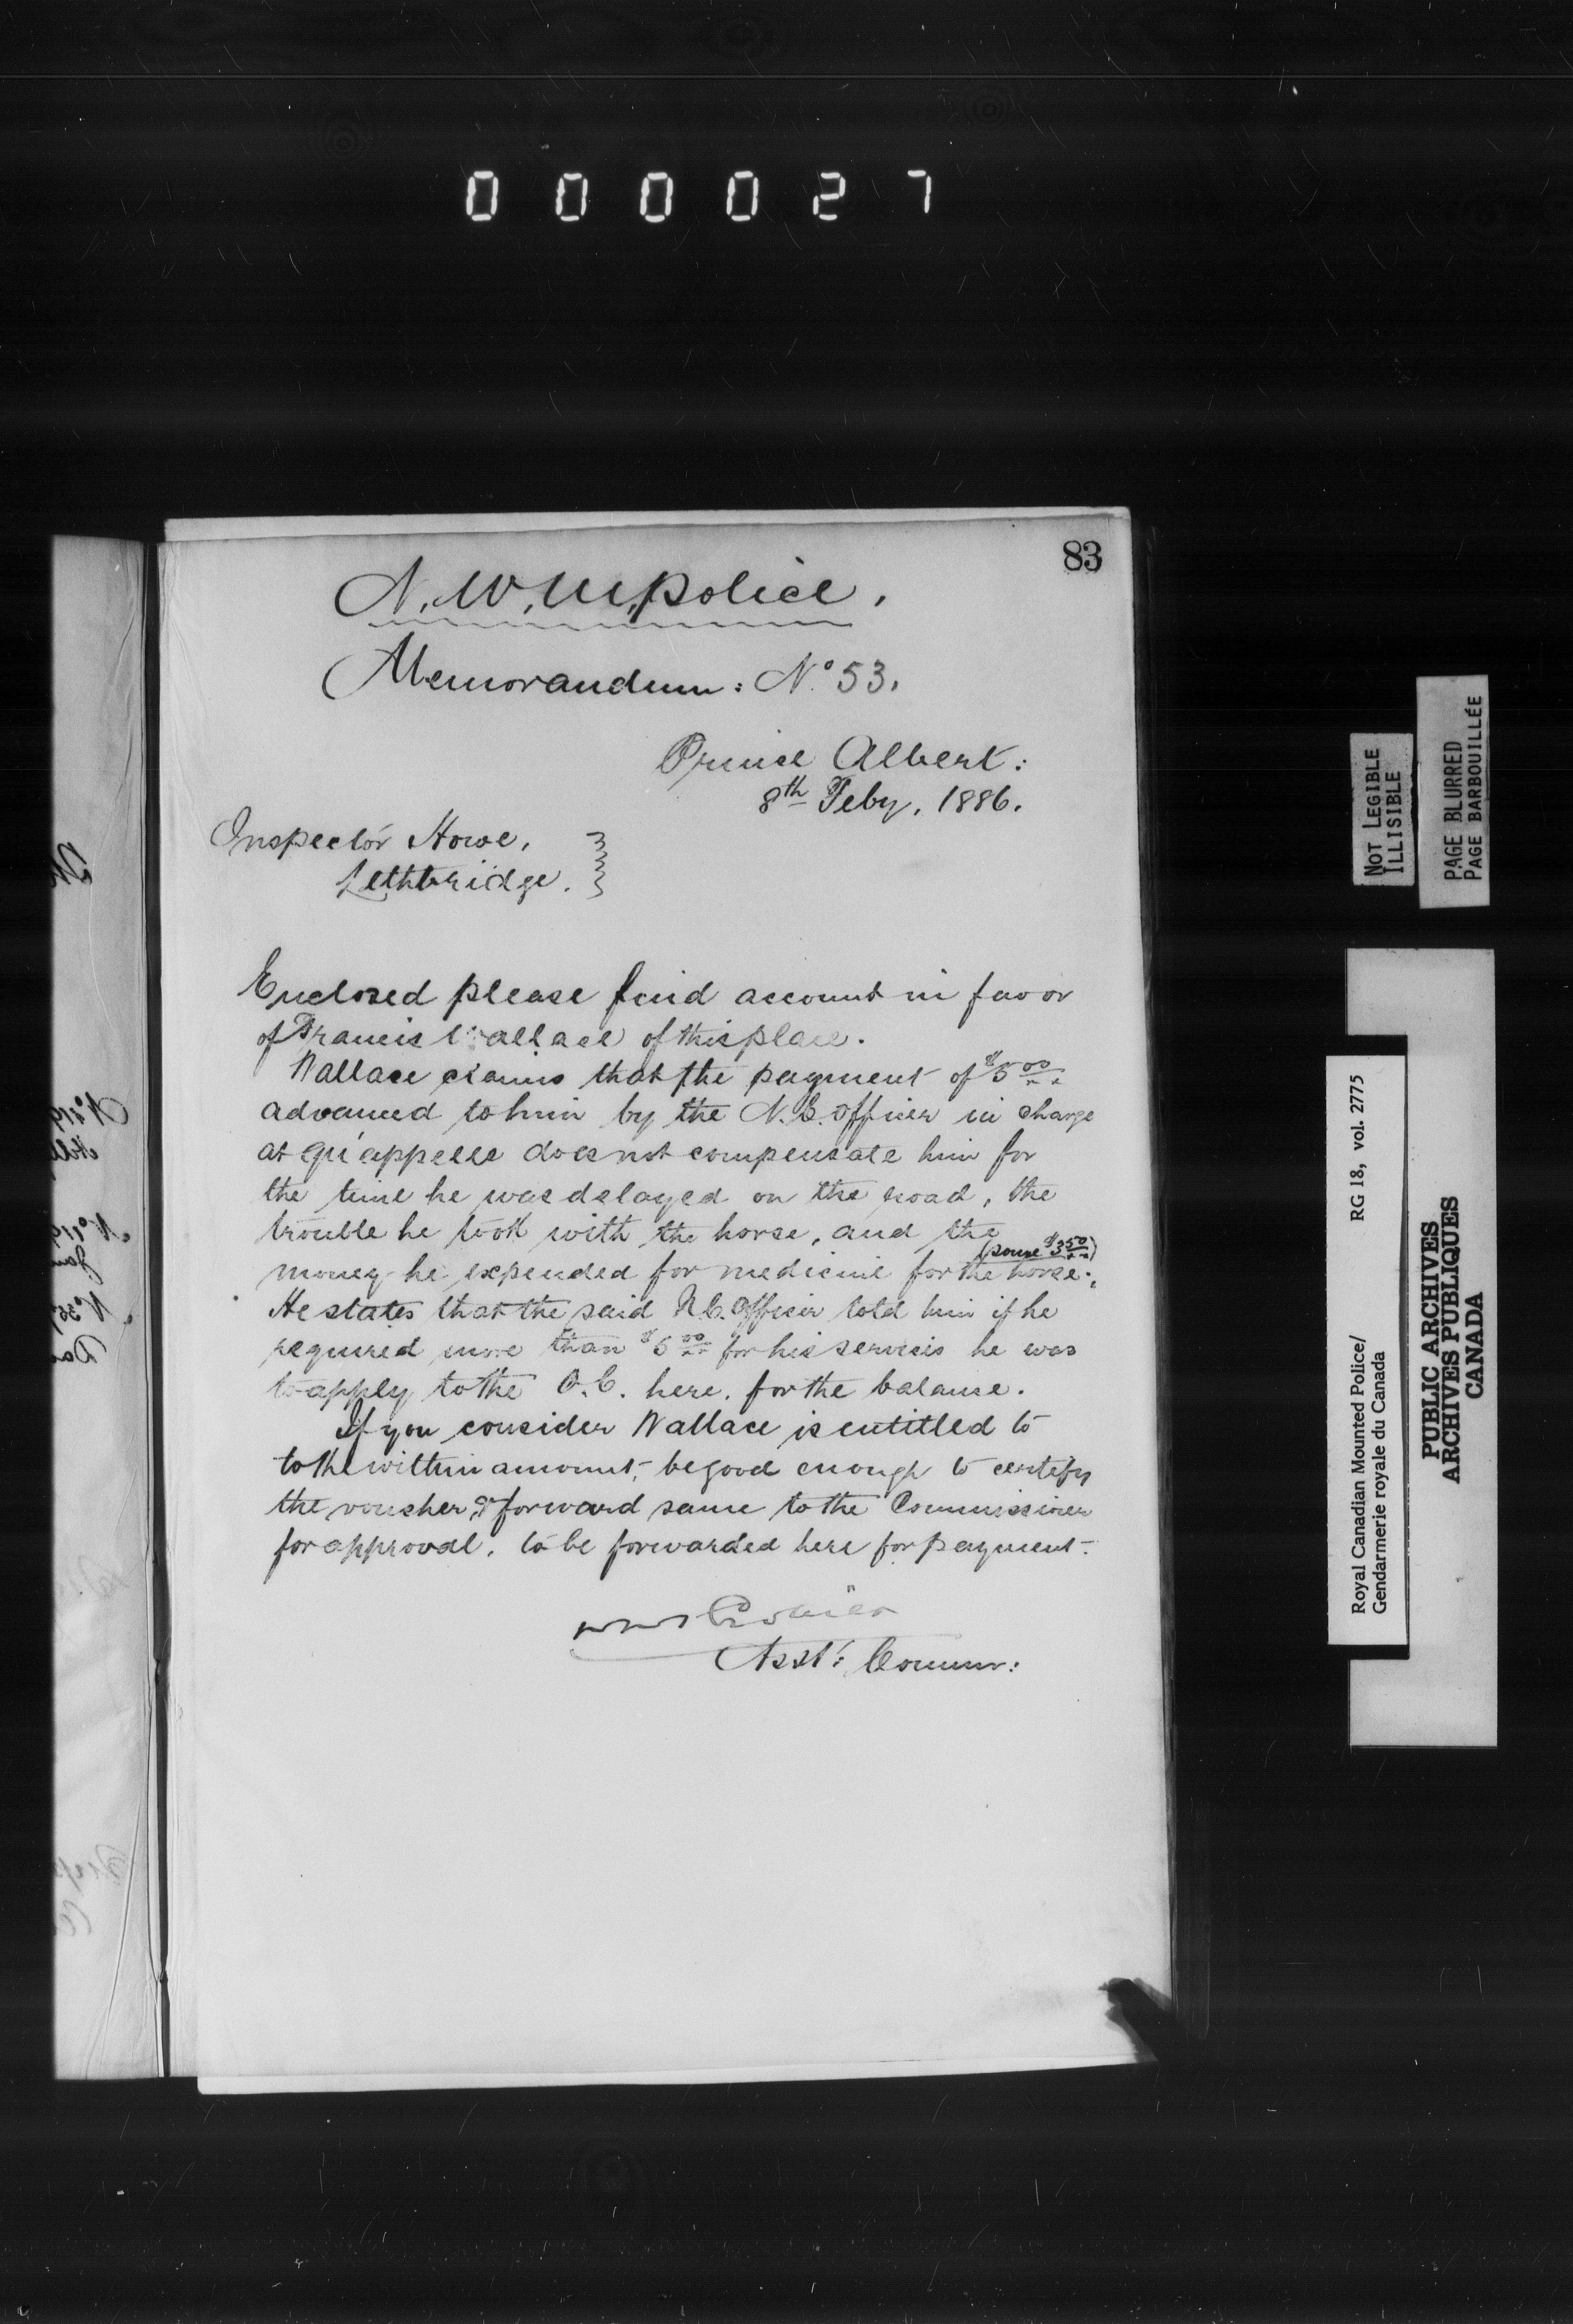 000027
83
N.W.M. Police.
Memorandum: Nº 53.
Prince Albert:
8th Feby. 1886.
Inspector Howe,
Lethbridge.
Enclosed please find account in favor
of Francis Wallace of this place.
Wallace claims that the payment of $5 00
advanced to him by the N.C. Officer in charge
at Qu'appelle does not compensate him for
the time he was delayed on the road, the
trouble he took with the horse, and the
(some $3 50)
money he expended for medicine for the horse.
He states that the said N.C. Officer told him if he
required more than $5 00 for his services he was
to apply to the O.C. here, for the balance.
If you consider Wallace is entitled to
to the within amount, be good enough to certify
the voucher, & forward same to the Commissioner
for approval, to be forwarded here for payment.
Asst: Commr:
NOT LEGIBLE
ILLISIBLE
PAGE BLURRED
PAGE BARBOUILLÉE
Royal Canadian Mounted Police/ RG 18, vol. 2775
Gendarmerie royale du Canada
PUBLIC ARCHIVES
ARCHIVES PUBLIQUES
CANADA